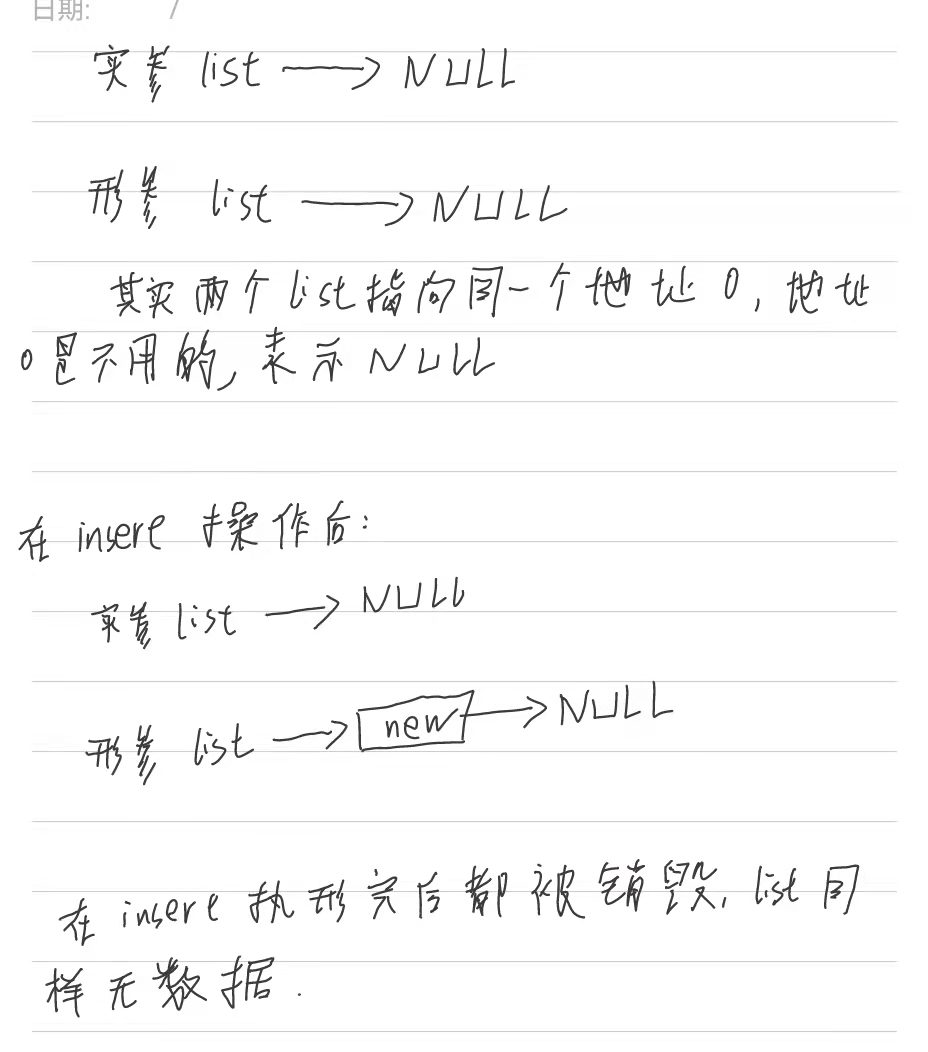 日期: /
实参 list → NULL
形参 list → NULL
其实两个list指向同一个地址0,地址
0是不用的,表示NULL
在insert操作后:
实参 list → NULL
形参 list → new → NULL
在insert执形完后都被销毁,list同
样无数据.